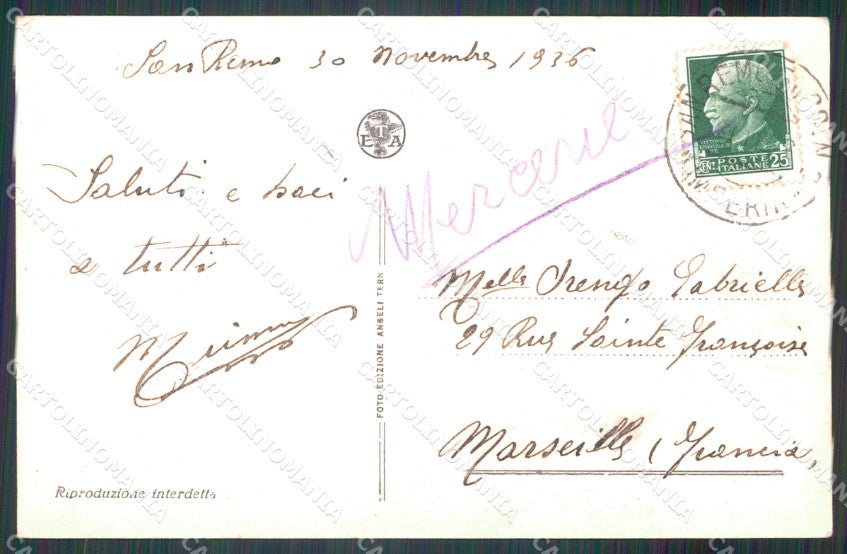 San Remo 30 Novembre 1936
E T A
Saluti e baci
a tutti
Mercerie
CENT. POSTE 25
ITALIANE
FOTO-EDIZIONE ANGELI TERNI
Melle Orengo Gabrielle
29 Rue Sainte Françoise
Marseille (Francia)
Riproduzione interdetta
CARTOLINOMANIA